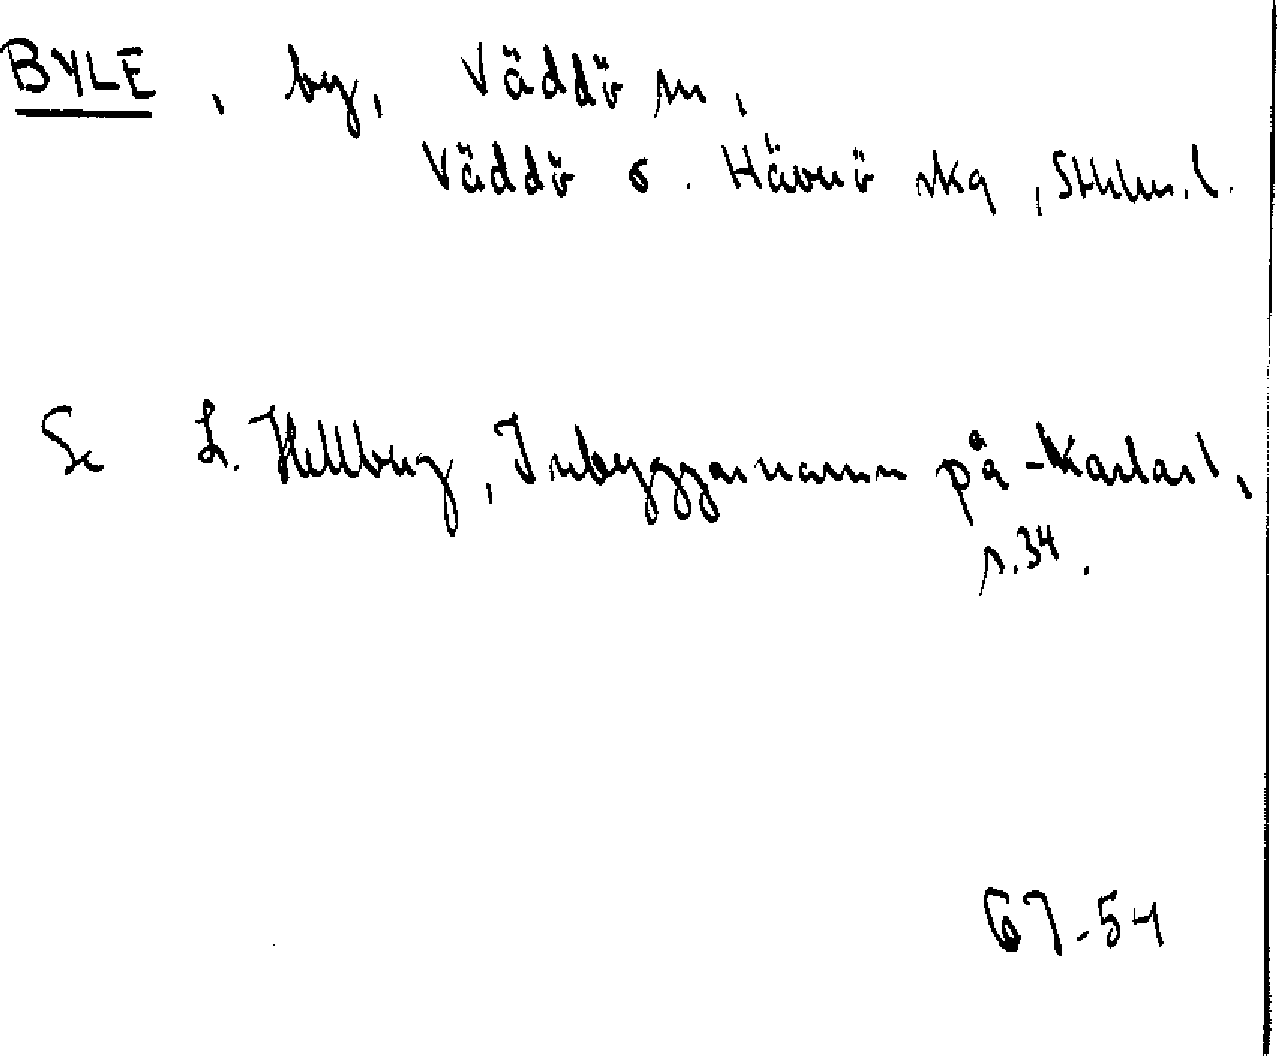 BYLE, by, Väddö sn,
Väddö o. Hävnö skg, Sthlms. l.
Se L. Hellberg, Inbyggarnamn på -karlar,
s. 34.
GJ-54